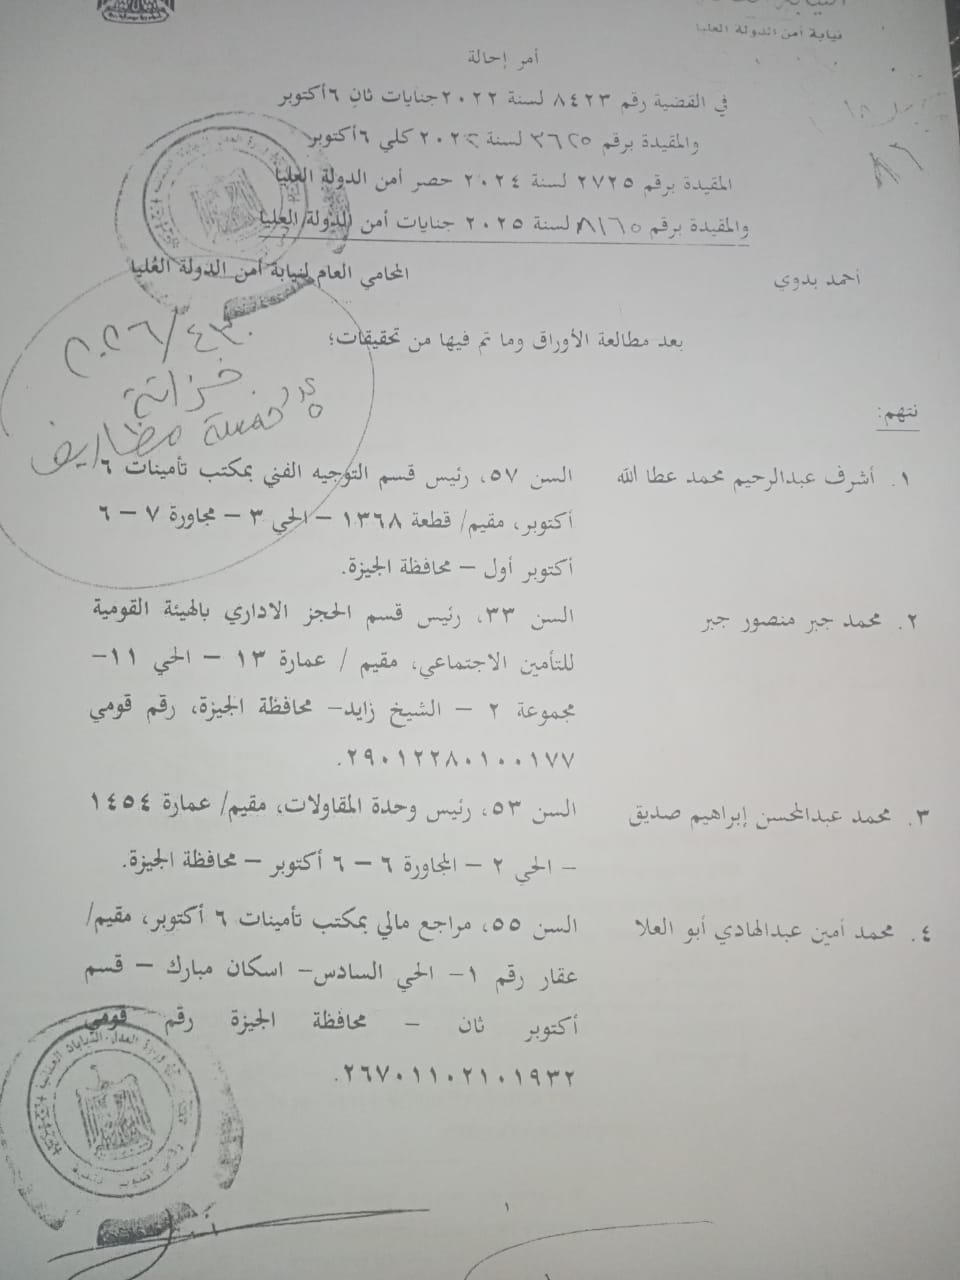 نيابة أمن الدولة العليا
أمر إحالة
في القضية رقم ٨٤٢٣ لسنة ٢٠٢٢ جنايات ثانِ ٦ أكتوبر
والمقيدة برقم ٣٦٢٥ لسنة ٢٠٢٢ كلي ٦ أكتوبر
المقيدة برقم ٢٧٢٥ لسنة ٢٠٢٤ حصر أمن الدولة العليا
والمقيدة برقم ٨١٦٥ لسنة ٢٠٢٥ جنايات أمن الدولة العليا
أحمد بدوي المحامي العام لنيابة أمن الدولة العُليا
بعد مطالعة الأوراق وما تم فيها من تحقيقات؛
خزانة
خمسة مظاريف
نتهم:
١. أشرف عبدالرحيم محمد عطا الله السن ٥٧، رئيس قسم التوجيه الفني بمكتب تأمينات ٦
أكتوبر، مقيم/ قطعة ١٣٦٨ – الحي ٣ – مجاورة ٧ – ٦
أكتوبر أول – محافظة الجيزة.
٢. محمد جبر منصور جبر السن ٣٣، رئيس قسم الحجز الاداري بالهيئة القومية
للتأمين الاجتماعي، مقيم / عمارة ١٣ – الحي ١١–
مجموعة ٢ – الشيخ زايد– محافظة الجيزة، رقم قومي
٢٩٠١٢٢٨٠١٠٠١٧٧.
٣. محمد عبدالمحسن إبراهيم صديق السن ٥٣، رئيس وحدة المقاولات، مقيم/ عمارة ١٤٥٤
– الحي ٢ – المجاورة ٦ – ٦ أكتوبر – محافظة الجيزة.
٤. محمد أمين عبدالهادي أبو العلا السن ٥٥، مراجع مالي بمكتب تأمينات ٦ أكتوبر، مقيم/
عقار رقم ١– الحي السادس– اسكان مبارك – قسم
أكتوبر ثان – محافظة الجيزة رقم قومي
٢٦٧٠١١٠٢١٠١٩٣٢.
١